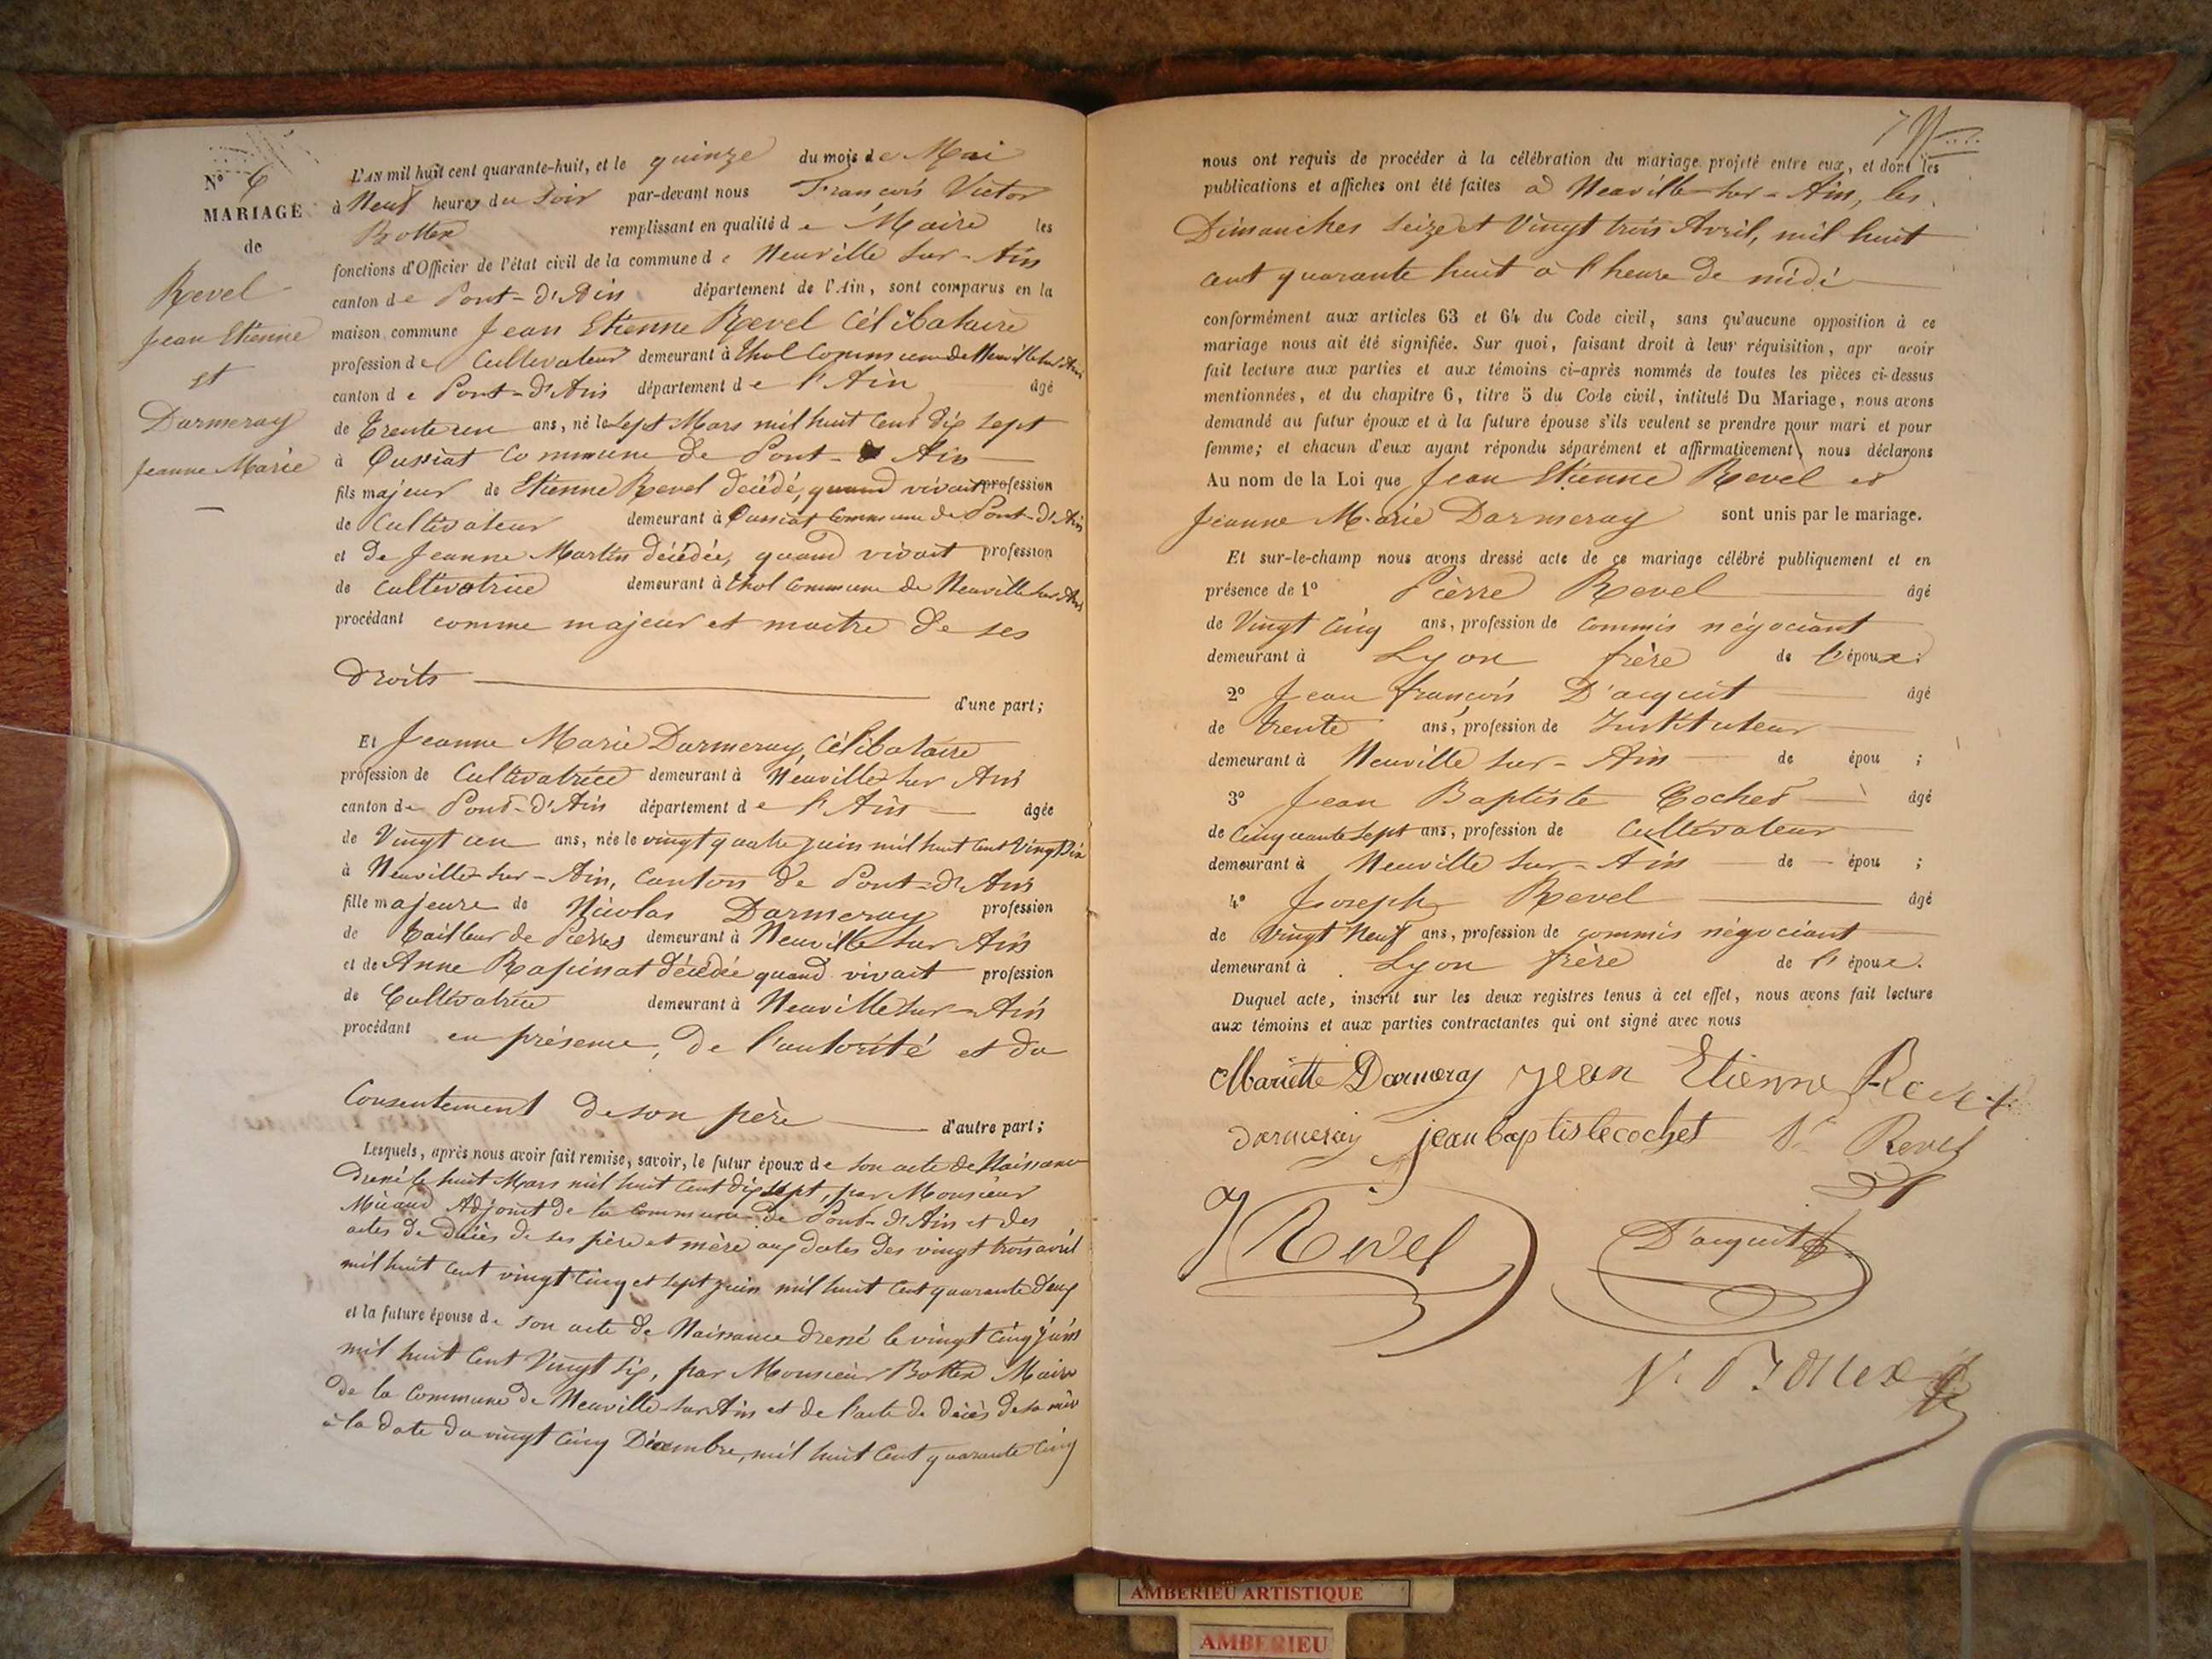 N° 6
MARIAGE
de
Revel
Jean Etienne
et
Darmeray
Jeanne Marie
L'AN mil huit cent quarante-huit, et le quinze du mois de Mai
à Neuf heures du Soir par-devant nous François Victor
Bottex remplissant en qualité de Maire les
fonctions d'Officier de l'état civil de la commune de Neuville sur-Ain
canton de Pont-d'Ain département de l'Ain, sont comparus en la
maison commune Jean Etienne Revel célibataire
profession de Cultivateur demeurant à Thol Commune de Neuville sur Ain
canton de Pont-d'Ain département de l'Ain âgé
de Trente un ans, né le Sept Mars mil huit Cent dix sept
à Oussiat Commune de Pont-d'Ain
fils majeur de Etienne Revel décédé, quand vivait profession
de Cultivateur demeurant à Oussiat Commune de Pont-d'Ain
et de Jeanne Martin décédée, quand vivait profession
de Cultivatrice demeurant à Thol Commune de Neuville sur Ain
procédant comme majeur et maître de ses
droits
d'une part;
Et Jeanne Marie Darmeray, Célibataire
profession de Cultivatrice demeurant à Neuville sur Ain
canton de Pont-d'Ain département de l'Ain âgée
de Vingt un ans, née le vingt quatre juin mil huit Cent Vingt Six
à Neuville-sur-Ain, Canton de Pont-d'Ain
fille majeure de Nicolas Darmeray profession
de Tailleur de Pierres demeurant à Neuville sur Ain
et de Anne Rapinat décédée quand vivait profession
de Cultivatrice demeurant à Neuville sur-Ain
procédant en présence, de l'autorité et du
Consentement de son père d'autre part;
Lesquels, après nous avoir fait remise, savoir, le futur époux de son acte de Naissance
dressé le huit Mars mil huit Cent dix sept, par Monsieur
Adjoint de la Commune de Pont-d'Ain et des
actes de décès de ses père et mère aux dates des vingt trois avril
mil huit Cent vingt Cinq et sept juin mil huit Cent quarante deux
et la future épouse de son acte de Naissance dressé le vingt Cinq juin
mil huit Cent Vingt Six, par Monsieur Bottex Maire
de la Commune de Neuville-sur Ain et de l'acte de décès de sa mère
à la date du vingt Cinq Décembre, mil huit Cent quarante Cinq
nous ont requis de procéder à la célébration du mariage projeté entre eux, et dont les
publications et affiches ont été faites à Neuville-sur-Ain, les
Dimanches seize et Vingt trois Avril, mil huit
cent quarante huit à l'heure de midi
conformément aux articles 63 et 64 du Code civil, sans qu'aucune opposition à ce
mariage nous ait été signifiée. Sur quoi, faisant droit à leur réquisition, apr avoir
fait lecture aux parties et aux témoins ci-après nommés de toutes les pièces ci-dessus
mentionnées, et du chapitre 6, titre 5 du Code civil, intitulé Du Mariage, nous avons
demandé au futur époux et à la future épouse s'ils veulent se prendre pour mari et pour
femme; et chacun d'eux ayant répondu séparément et affirmativement, nous déclarons
Au nom de la Loi que Jean Etienne Revel et
Jeanne Marie Darmeray sont unis par le mariage.
Et sur-le-champ nous avons dressé acte de ce mariage célébré publiquement et en
présence de 1° Pierre Revel âgé
de Vingt Cinq ans, profession de commis négociant
demeurant à Lyon frère de l'époux;
2° Jean François D'acquit âgé
de Trente ans, profession de Instituteur
demeurant à Neuville sur-Ain de épou ;
3° Jean Baptiste Cochet âgé
de Cinquante Sept ans, profession de Cultivateur
demeurant à Neuville sur-Ain de épou ;
4° Joseph Revel âgé
de Vingt Neuf ans, profession de commis négociant
demeurant à Lyon frère de l'époux.
Duquel acte, inscrit sur les deux registres tenus à cet effet, nous avons fait lecture
aux témoins et aux parties contractantes qui ont signé avec nous
Mariette Darmeray Jean Etienne Revel
Darmeray jean baptiste cochet Revel
J Revel D'acquit
V. Bottex
AMBERIEU ARTISTIQUE
AMBERIEU